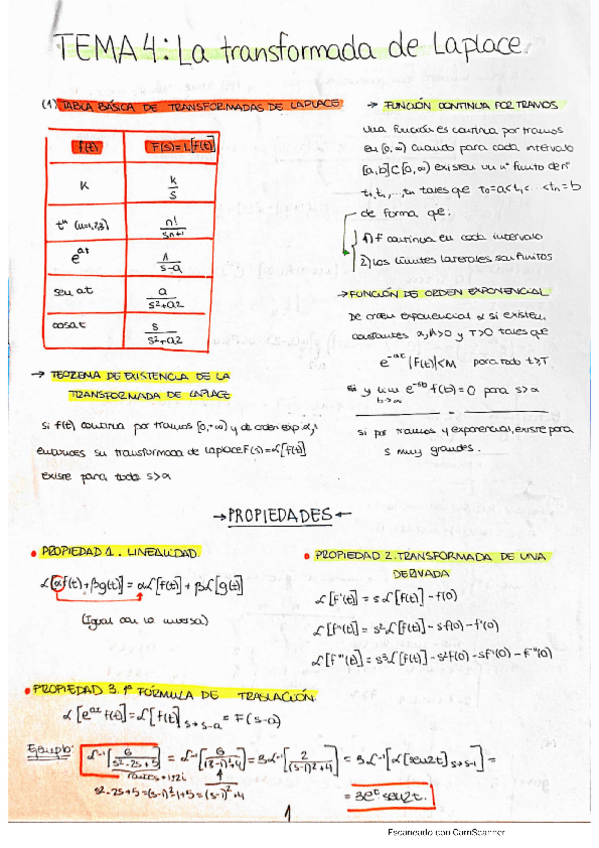 TEMA 4: La transformada de Laplace.
(1) TABLA BÁSICA DE TRANSFORMADAS DE LAPLACE
f(t) F(s)=L[f(t)]
K k/s
tⁿ (n=1,2,3) n!/sn+1
e^at 1/s-a
sen at a/s²+a2
cosat s/s²+a2
→ TEOREMA DE EXISTENCIA DE LA
TRANSFORMADA DE LAPLACE
si f(t) continua por tramos [0,+∞) y de orden exp. α,
entonces su transformada de Laplace F(s)=L[f(t)]
existe para todo s>α
→ FUNCIÓN CONTINUA POR TRAMOS
Una función es continua por tramos
en [0,∞) cuando para cada intervalo
[a,b]⊂[0,∞) existen un nº finito de
t₀,t₁,...,tn tales que t₀=a<t₁<...<tn=b
de forma que:
1) f continua en cada intervalo
2) Los límites laterales son finitos
→ FUNCIÓN DE ORDEN EXPONENCIAL
De orden exponencial α si existen
constantes α,M>0 y T>0 tales que
e^-αt |f(t)|<M para todo t≥T.
si y lim b→∞ e^-sb f(b)=0 para s>α
si por tramos y exponencial, existe para
s muy grandes.
→PROPIEDADES←
• PROPIEDAD 1. LINEALIDAD.
L[αf(t)+βg(t)] = αL[f(t)] + βL[g(t)]
(Igual con la inversa)
• PROPIEDAD 2. TRANSFORMADA DE UNA
DERIVADA
L[f'(t)] = sL[f(t)] - f(0)
L[f''(t)] = s²L[f(t)] - sf(0) - f'(0)
L[f'''(t)] = s³L[f(t)] - s²f(0) - sf'(0) - f''(0)
• PROPIEDAD 3. 1ª FÓRMULA DE TRASLACIÓN.
L[e^at f(t)] = L[f(t)] s→s-a = F(s-a)
Ejemplo: L⁻¹[6/s²-2s+5] = L⁻¹[6/(s-1)²+4] = 3L⁻¹[2/(s-1)²+4] = 3L⁻¹[L[sen2t] s→s-1] =
raíces +1±2i
s²-2s+5=(s-1)²-1+5=(s-1)²+4
= 3e^t sen2t.
1
Escaneado con CamScanner